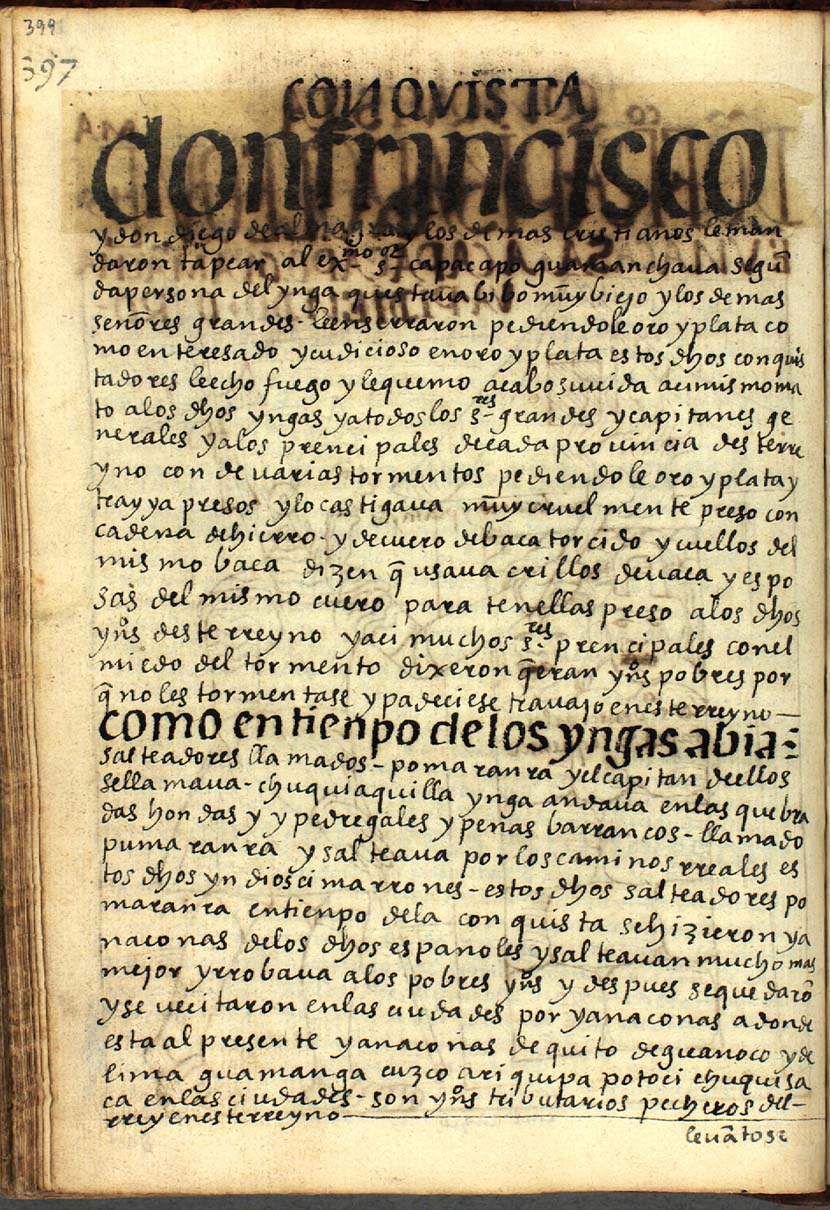 399
397
CONQVISTA
don francisco
y don diego de almagro y los demas cristianos le man
daron tãpear al exmo sor capac apo guaman chaua segũ
da persona del ynga que staua bibo muy biejo y los demas
señores grandes - le enserraron pediendole oro y plata co
mo enteresado y cudicioso en oro y plata estos dhos conquis
tadores le echo fuego y le quemo acabo su uida aci mismo ma
to a los dhos yngas y a todos los sres grandes y capitanes ge
nerales y a los prencipales de cada prouincia deste rre
yno con de uarias tormentos pediendole oro y plata y
trayya presos y lo castigaua muy cruelmente preso con
cadena de hierro - y de cuero de baca torcido y cuellos del
mismo baca dizen q̃ usaua crillos de uaca y espo
sas del mismo cuero para tenellas preso a los dhos
yños deste rreyno y aci muchos sres prencipales con el
miedo del tormento dixeron q̃ eran yños pobres por
q̃ no les tormentase y padeciese trauajo en este rreyno —
como en tienpo de los yngas abia
salteadores llamados - poma ranra y el capitan de ellos
se llamaua - chuqui aquilla ynga andaua en las quebra
das hondas y y pedregales y peñas barrancos - llamado
puma ranra y salteaua por los caminos rreales es
tos dhos yndios cimarrones - estos dhos salteadores po
ma ranra en tienpo de la conquista se hizieron ya
naconas de los dhos españoles y salteauan mucho mas
mejor y rrobaua a los pobres yños y despues se quedarõ
y se uecitaron en las ciudades por yanaconas adonde
esta al presente yanaconas de quito de guanoco y de
lima guamanga cuzco ariquipa potoci chuquisa
ca en las ciudades - son yños tributarios pecheros del -
rrey en este rreyno —
leuãtose